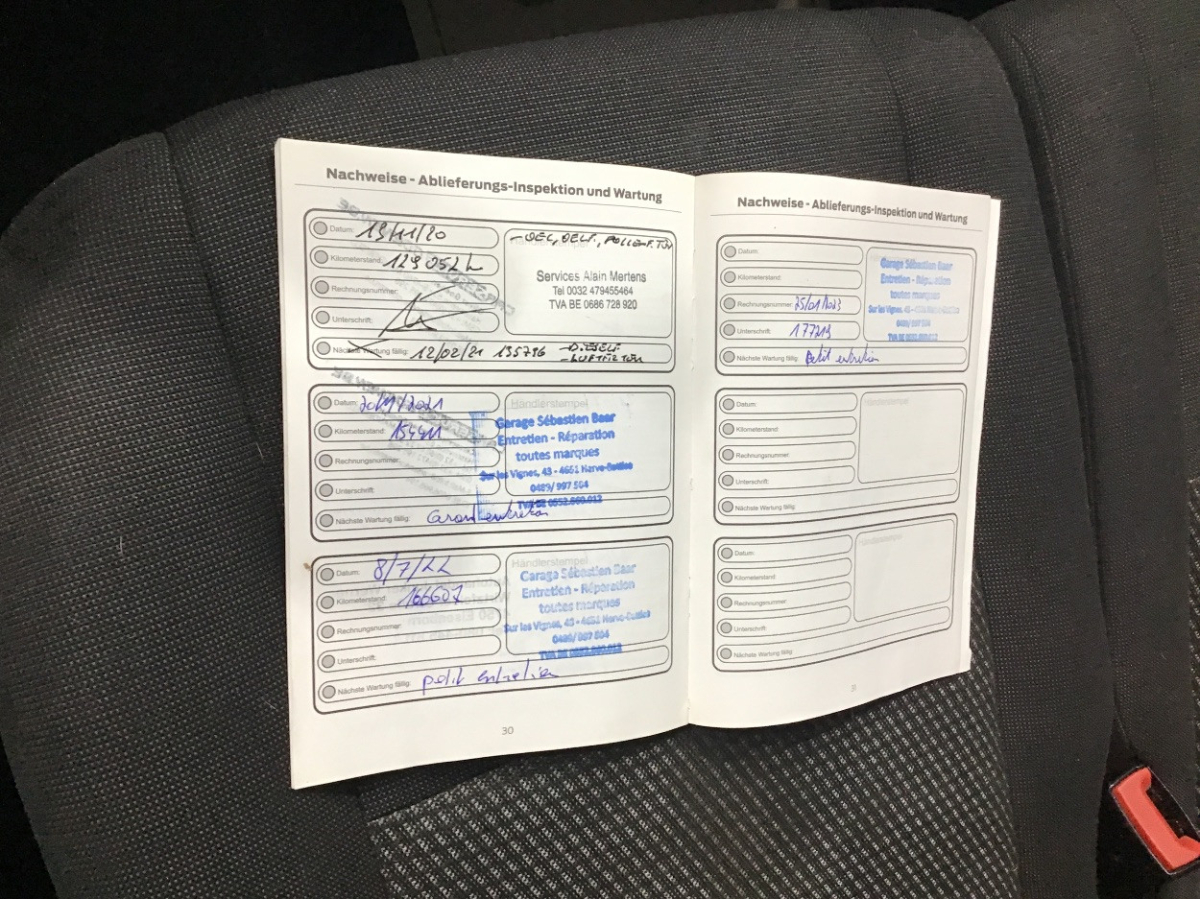 Nachweise - Ablieferungs-Inspektion und Wartung
Datum: 19/11/20
Kilometerstand: 129 052
Rechnungsnummer:
Unterschrift:
Nächste Wartung fällig: 12/02/21 135796
- OEL, OELF., POLLENF.
Services Alain Mertens
Tel 0032 479455464
TVA BE 0686 728 920
- DIESELF.
Datum:
Kilometerstand: 154411
Rechnungsnummer:
Unterschrift:
Nächste Wartung fällig: Grand entretien
Händlerstempel
Garage Sébastien Baar
Entretien - Réparation
toutes marques
Sur les Vignes, 43 - 4651 Herve-Battice
0489/ 997 504
TVA BE 0552.660.012
Datum: 8/7/22
Kilometerstand: 166607
Rechnungsnummer:
Unterschrift:
Nächste Wartung fällig: petit entretien
Händlerstempel
Garage Sébastien Baar
Entretien - Réparation
toutes marques
Sur les Vignes, 43 - 4651 Herve-Battice
30
Nachweise - Ablieferungs-Inspektion und Wartung
Datum:
Kilometerstand:
Rechnungsnummer: 25/01/2023
Unterschrift: 177219
Nächste Wartung fällig: Petit entretien
Garage Sébastien Baar
Entretien - Réparation
toutes marques
Datum:
Kilometerstand:
Rechnungsnummer:
Unterschrift:
Nächste Wartung fällig:
Händlerstempel
Datum:
Kilometerstand:
Rechnungsnummer:
Unterschrift:
Nächste Wartung fällig:
Händlerstempel